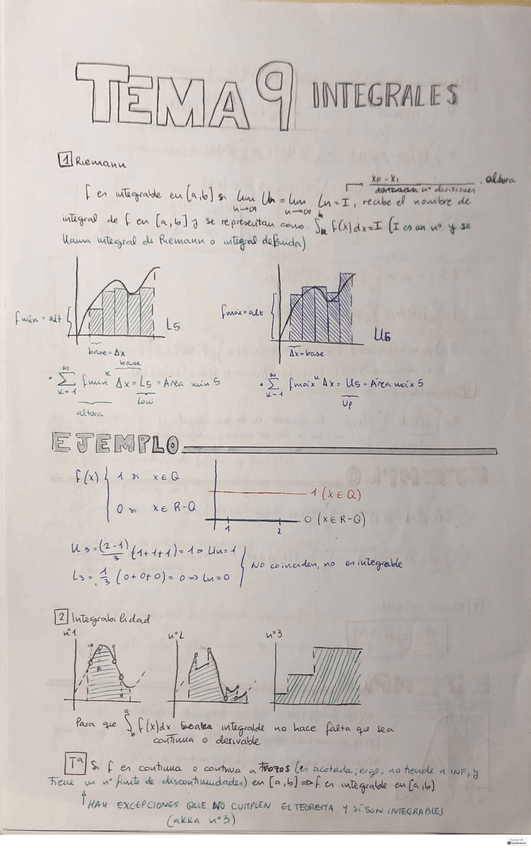 TEMA 9 INTEGRALES
1 Riemann
xF - xi
nº divisiones
altura
f es integrable en [a,b] si lim Un = lim Ln = I, recibe el nombre de
n→∞ n→∞
integral de f en [a,b] y se representan como ∫ f(x)dx = I (I es un nº y se
llama integral de Riemann o integral definida)
fmín = alt
L5
base = Δx
fmáx = alt
U5
Δx = base
base
• ∑ fmín Δx = L5 = Área mín 5
k=1
altura
Low
• ∑ fmáx Δx = U5 = Área máx 5
k=1
Up
EJEMPLO
f(x) { 1 si x ∈ Q
0 si x ∈ R-Q
1 (x ∈ Q)
0 (x ∈ R-Q)
1 2
U3 = (2-1)/3 (1+1+1) = 1 ⇒ Un = 1
L3 = 1/3 (0+0+0) = 0 ⇒ Ln = 0
No coinciden, no es integrable
2 Integrabilidad
nº1 nº2 nº3
Para que ∫ f(x)dx integrable no hace falta que sea
continua o derivable
Tª Si f es continua o continua a TROZOS (es acotada; ergo, no tiende a INF, y
tiene un nº finito de discontinuidades) en [a,b] ⇒ f es integrable en [a,b]
↑ HAY EXCEPCIONES QUE NO CUMPLEN EL TEOREMA Y SÍ SON INTEGRABLES
(akka nº3)